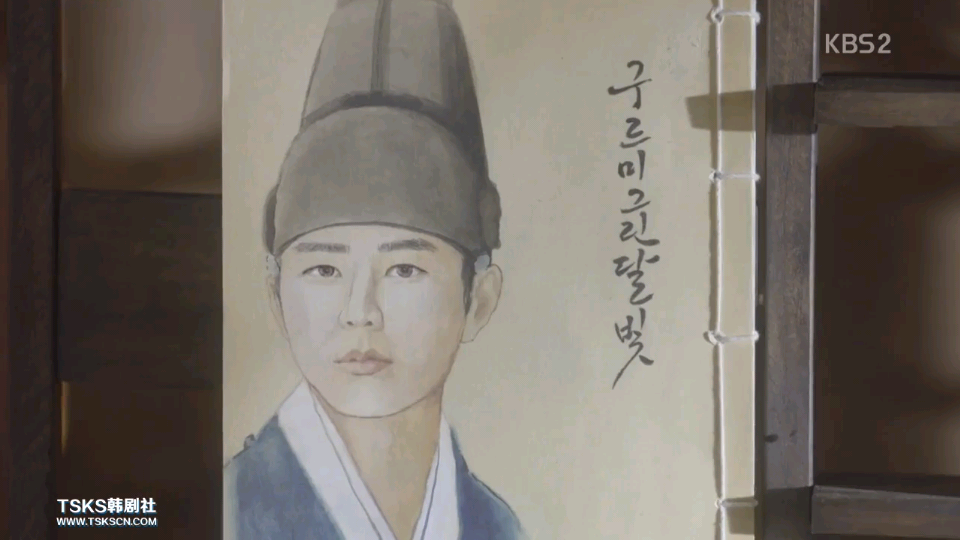 KBS2
구르미 그린 달빛
TSKS韩剧社
WWW.TSKSCN.COM